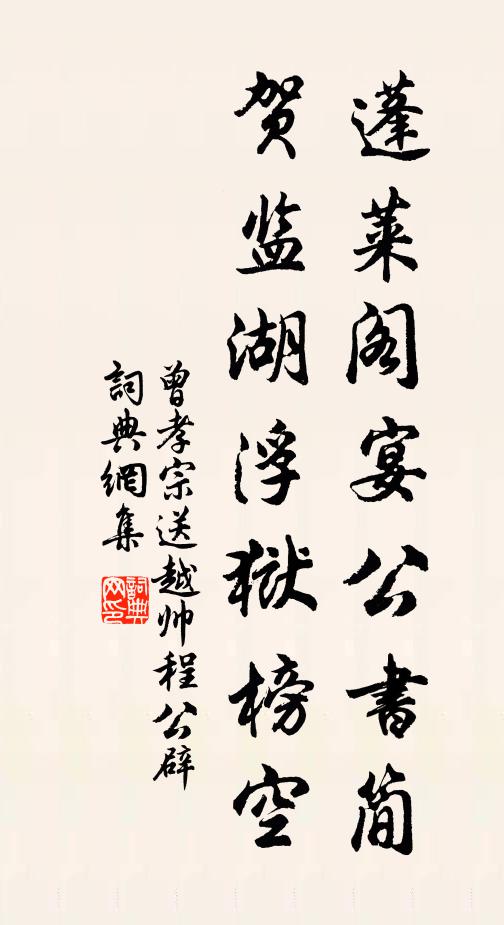 蓬莱阁宴公書简
贺监湖浮狱榜空
曾孝宗送越帅程公辟
詞典網集
詞典網印